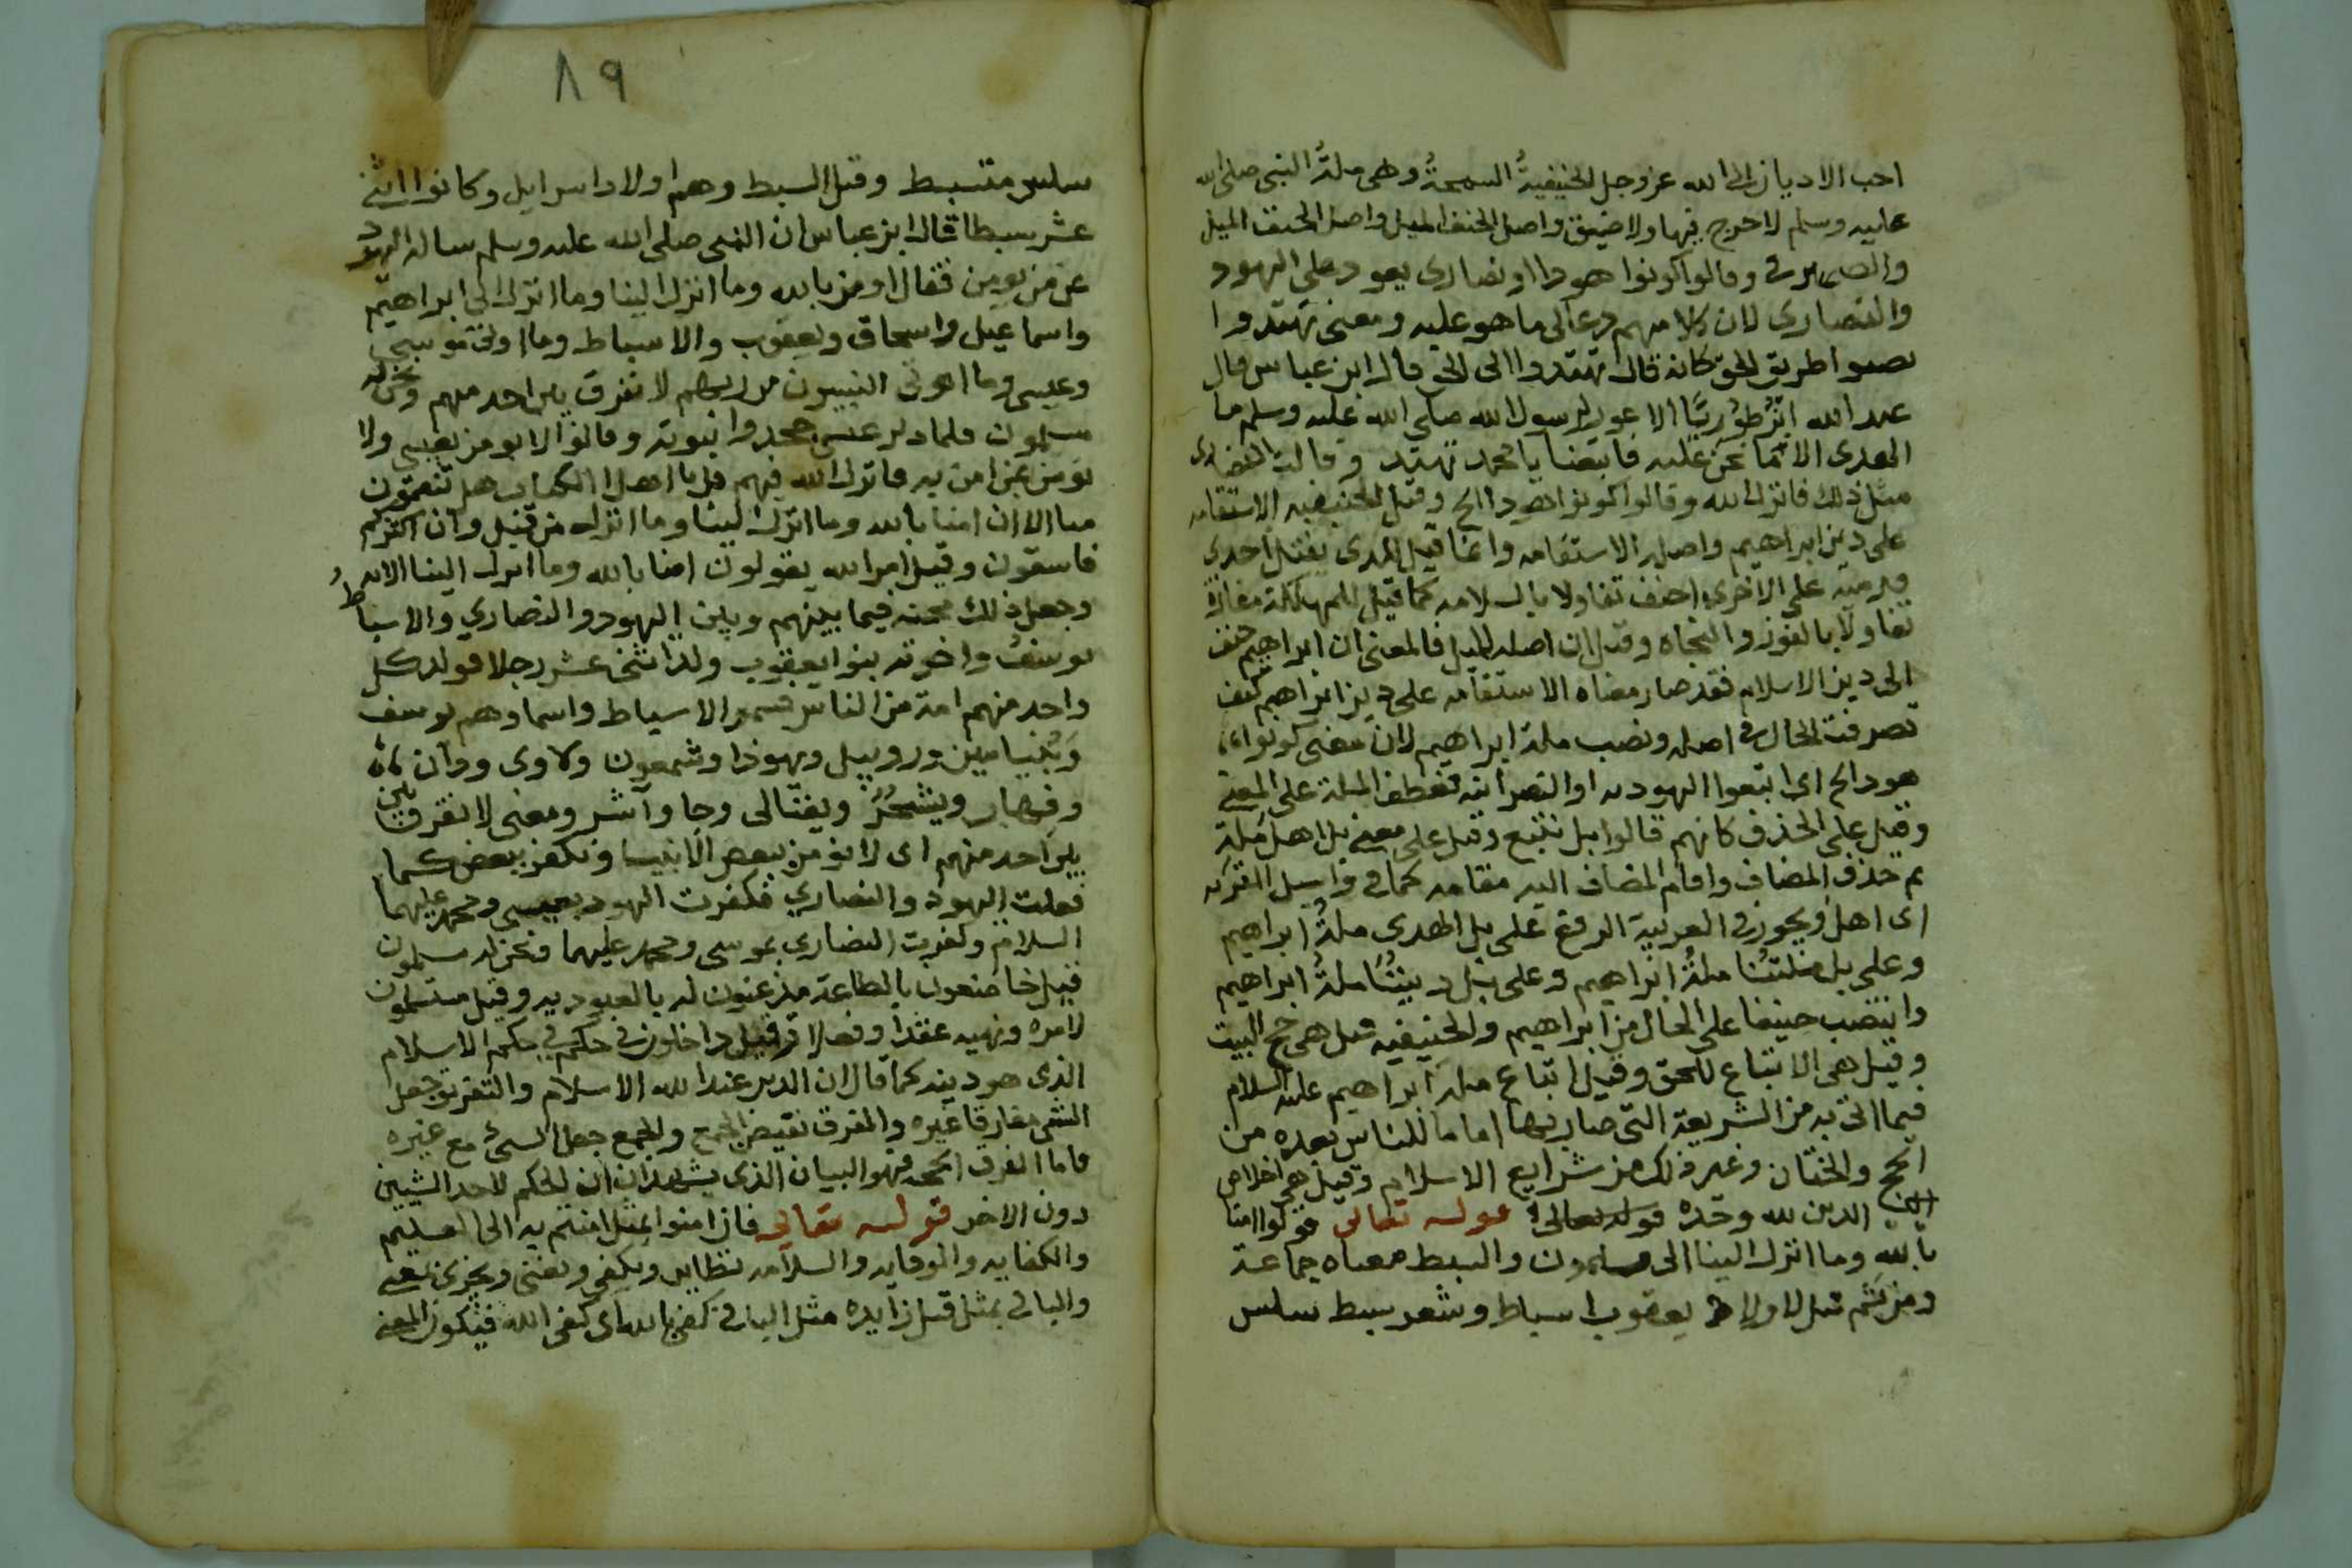 احب الاديان الى الله عز وجل الحنيفيةُ السمحةُ وهى ملةُ النبى صلى الله
عليه وسلم لا حرج فيها ولا ضيق واصل الحنف الميل واصل الحنف الميل
وقالوا كونوا هودا او نصارى يعود على اليهود
والنصارى لان كلامهم دعا الى ما هو عليه ومعنى تهتدوا
تصيبوا طريق الحق كانه قال تهتدوا الى الحق قال ابن عباس قال
عبد الله ابن صُورِيَّا الاعور لرسول الله صلى الله عليه وسلم ما
الهدى الا ما نحن عليه فاتبعنا يا محمد تهتد وقالت النصارى
مثل ذلك فانزل الله وقالوا كونوا هودا الخ وقيل الحنيفيه الاستقامه
على دين ابراهيم واصله الاستقامه وانما قيل للذى يقبل احدى
قدميه على الاخرى احنف تفاولا بالسلامه كما قيل للمهلكة مفازة
تفاولا بالفوز والنجاه وقيل ان اصله الميل فالمعنى ان ابراهيم حنف
الى دين الاسلام فقد صار معناه الاستقامه على دين ابراهيم كيف
تصرفت الحال فى اصله ونصب ملة ابراهيم لان معنى كونوا
هودا الخ اى اتبعوا اليهوديه او النصرانيه فعطف الملة على المعنى
وقيل على الحذف كانهم قالوا بل نتبع وقيل على معنى بل اهل مله
ثم حذف المضاف واقام المضاف اليه مقامه كما فى واسيل القريه
اى اهل ويجوز فى العربية الرفع على بل الهدى ملةُ ابراهيم
وعلى بل ملتنُا ملةُ ابراهيم وعلى بل ديننُا ملةُ ابراهيم
وانتصب حنيفا على الحال من ابراهيم والحنيفيه قيل هى حج البيت
وقيل هى الاتباع للحق وقيل اتباع ملة ابراهيم عليه السلام
فيما اتى به من الشريعة التى صار بها اماما للناس بعده من
الحج والختان وغير ذلك من شرايع الاسلام وقيل هى اخلاص
الدين لله وحده قوله تعالى قوله تعالى قولوا امنا
بالله وما انزل الينا الى مسلمون والسبط معناه جماعة
ومن ثم قيل لاولاد يعقوب اسباط وشعر سبط سلس
٨٩
سلس منبسط وقيل السبط وهم اولاد اسرايل وكانوا اثنى
عشر سبطا قال ابن عباس ان النبى صلى الله عليه وسلم ساله اليهود
عن من يومن فقال اومن بالله وما انزل الينا وما انزل الى ابراهيم
واسماعيل واسحاق ويعقوب والاسباط وما اوتى موسى
وعيسى وما اوتى النبيون من ربهم لا نفرق بين احد منهم ونحن له
مسلمون فلما ذكر عيسى جحدوا نبوته وقالوا لا نومن بعيسى ولا
نومن بمن امن به فانزل الله فيهم قل يا اهل الكتاب هل تنقمون
منا الا ان امنا بالله وما انزل الينا وما انزل من قبل وان اكثركم
فاسقون وقيل امر الله يقولون امنا بالله وما انزل الينا الايه
وجعل ذلك محنه فيما بينهم وبين اليهود والنصارى والاسباطُ
يوسفُ واخوته بنوا يعقوب ولد اثنى عشر رجلا فولد كل
واحد منهم امة من الناس فسموا الاسباط واسماوهم يوسف
وبُنيامين وروبيل ويهوذا وشمعون ولاوى ودان
وقهار ويشجر ويفتالى وجا وآشر ومعنى لا نفرق بين
بين احد منهم اى لا نومن ببعض الانبيا ونكفر ببعض كما
فعلت اليهود والنصارى فكفرت اليهود بعيسى ومحمد عليهما
السلام وكفرت النصارى بموسى ومحمد عليهما ونحن له مسلمون
قيل خاضعون بالطاعة مذعنون له بالعبوديه وقيل مستسلمون
لامره ونهيه عقدا وفعلا وقيل داخلون فى حكم فى حكم الاسلام
الذى هو دينه كما قال ان الدين عند الله الاسلام والتفريق جعل
الشى مفارقا غيره والفرق نقيض الجمع والجمع جعل الشىء مع غيره
فاما الفرق فهو البيان الذى يشهد ان الحكم لاحد الشيين
دون الاخر قوله تعالى فان امنوا بمثل امنتم به الى العليم
والكفايه والوقايه والسلامه نظاير ويكفى ويغنى ويجزى بمعنى
والبا فى بمثل قيل زايده مثل البا فى كفى بالله اى كفى الله فيكون المعنى